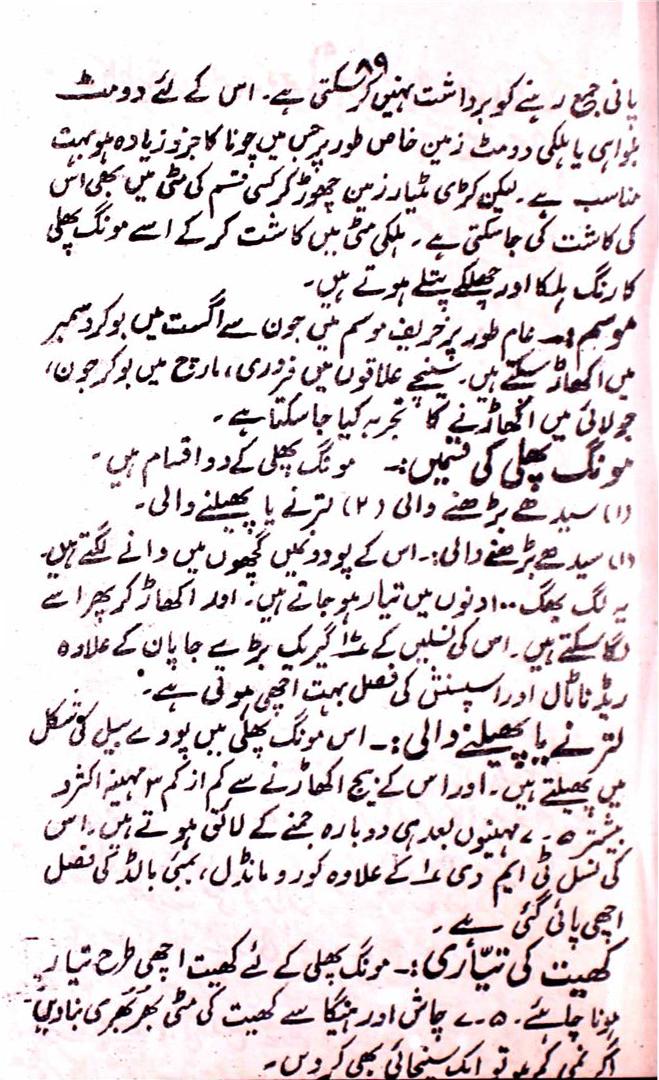 ۸۹
پانی جمع رہنے کو برداشت نہیں کر سکتی ہے۔ اس کے لئے دومٹ
بلواہی یا ہلکی دومٹ زمین خاص طور پر جس میں چونا کا جزو زیادہ ہو بہت
مناسب ہے۔ لیکن کڑی مٹیار زمین چھوڑ کر کسی قسم کی مٹی میں بھی اس
کی کاشت کی جا سکتی ہے۔ ہلکی مٹی میں کاشت کر کے اسے مونگ پھلی
کا رنگ ہلکا اور چھلکے پتلے ہوتے ہیں۔
موسم :۔ عام طور پر خریف موسم میں جون سے اگست میں بوکر دسمبر
میں اکھاڑ سکتے ہیں۔ سینچے علاقوں میں فروری، مارچ میں بوکر جون،
جولائی میں اکھاڑنے کا تجربہ کیا جا سکتا ہے۔
مونگ پھلی کی قسمیں :۔ مونگ پھلی کے دو اقسام ہیں۔
(۱) سیدھے بڑھنے والی (۲) لترنے یا پھیلنے والی۔
(۱) سیدھے بڑھنے والی :۔ اس کے پودو میں گچھوں میں دانے لگتے ہیں۔
یہ لگ بھگ ۱۰۰ دنوں میں تیار ہو جاتے ہیں۔ اور اکھاڑ کر پھر اسے
لگا سکتے ہیں۔ اس کی نسلیں کے بڑے جاپان کے علاوہ
ریڈ ناٹال اور اسپنش کی فصل بہت اچھی ہوتی ہے۔
لترنے یا پھیلنے والی :۔ اس مونگ پھلی میں پودے بیل کی شکل
میں پھیلتے ہیں۔ اور اس کے بیج اکھاڑنے سے کم از کم ۳ مہینہ اکثر و
بیشتر ۵۔۷ مہینوں بعد ہی دوبارہ جمنے کے لائق ہوتے ہیں۔ اس
کی نسل ٹی ایم وی کے علاوہ کورومانڈل، بمبئی بالڈ کی فصل
اچھی پائی گئی ہے۔
کھیت کی تیّاری :۔ مونگ پھلی کے لئے کھیت اچھی طرح تیار
ہونا چاہئے۔ ۵۔۷ چاش اور ہینگا سے کھیت کی مٹی بھربھری بنا دیں
اگر نمی کم ہو تو ایک سنچائی بھی کر دیں۔